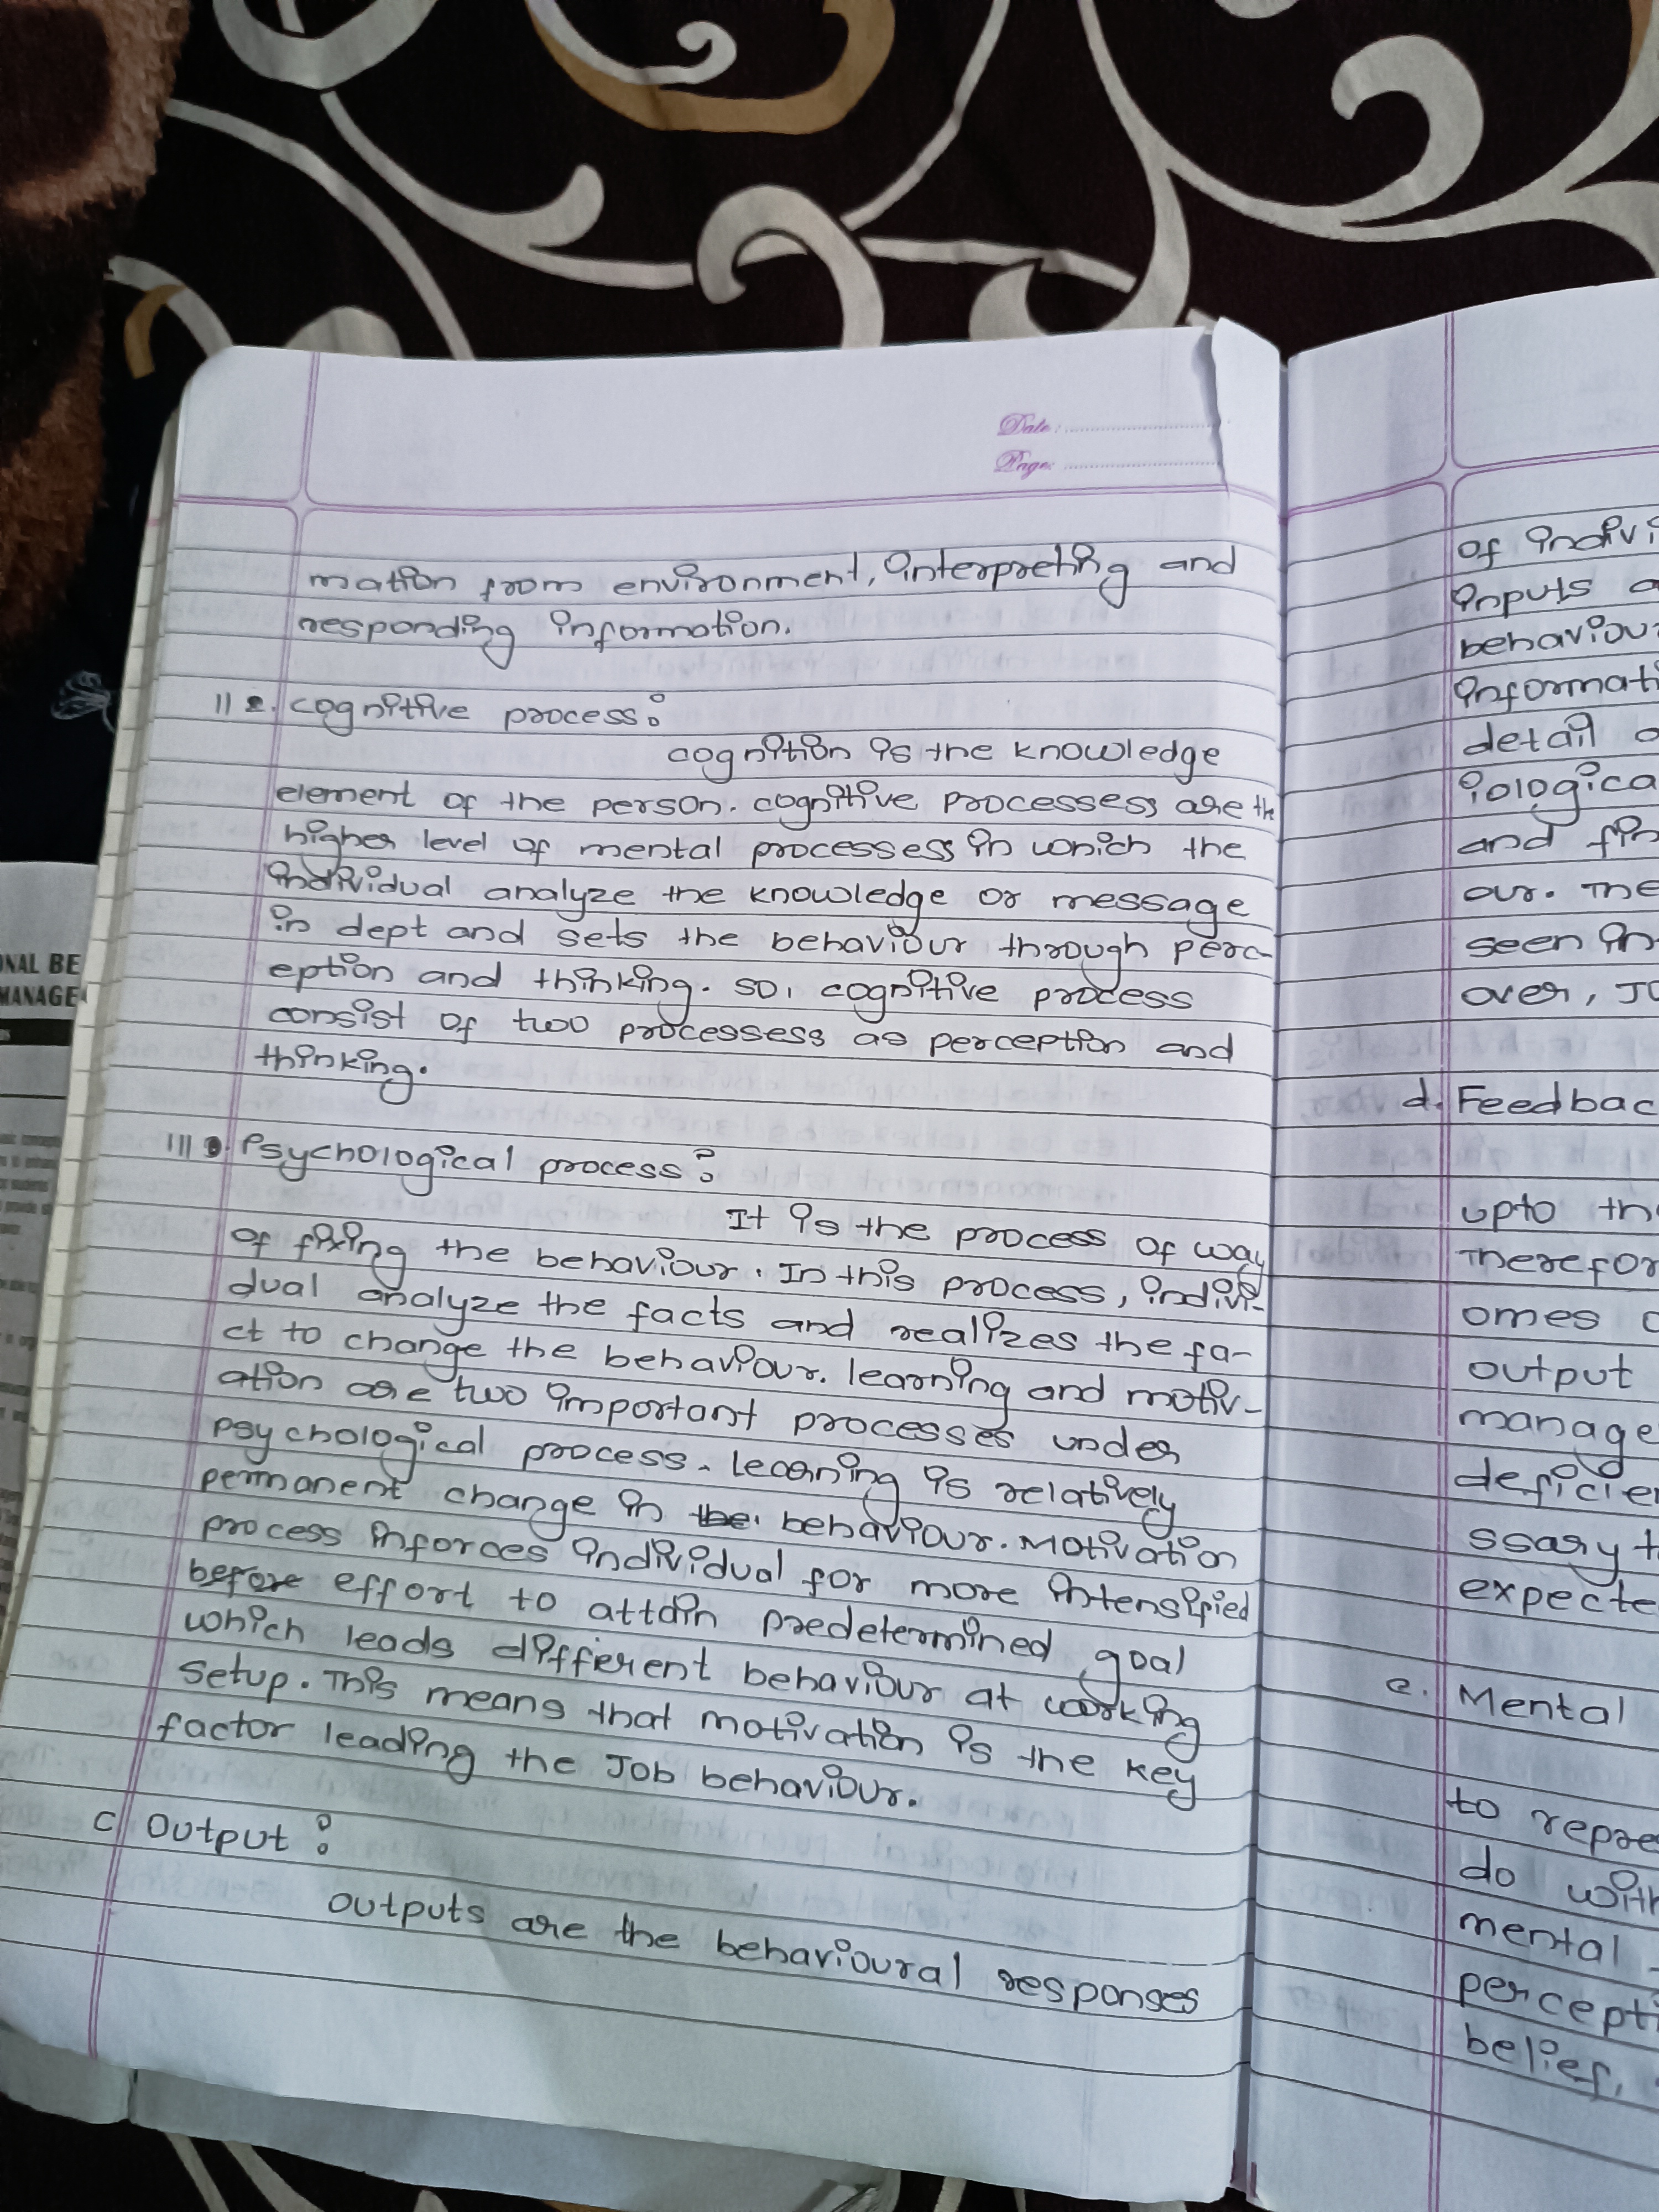 Date:
Page:
mation from environment, interpreting and
responding information.
II 2. cognitive process:
cognition is the knowledge
element of the person. cognitive processess are the
higher level of mental processess in which the
individual analyze the knowledge or message
in dept and sets the behaviour through perc-
eption and thinking. so, cognitive process
consist of two processess as perception and
thinking.
III. Psychological process:
It is the process of way
of fixing the behaviour. In this process, indivi-
dual analyze the facts and realizes the fa-
ct to change the behaviour. learning and motiv-
ation are two important processes under
psychological process. learning is relatively
permanent change in the behaviour. Motivation
process inforces individual for more intensified
before effort to attain predetermined goal
which leads different behaviour at working
setup. This means that motivation is the key
factor leading the Job behaviour.
c Output:
outputs are the behavioural responses
of indivi
inputs a
behaviour
informati
detail
iologica
and fin
our. The
seen in
over, Jo
d. Feedbac
upto th
Therefor
omes
output
manage
deficie
ssary t
expecte
e. Mental
to repre
do with
mental
percepti
belief,
ONAL BE
MANAGE